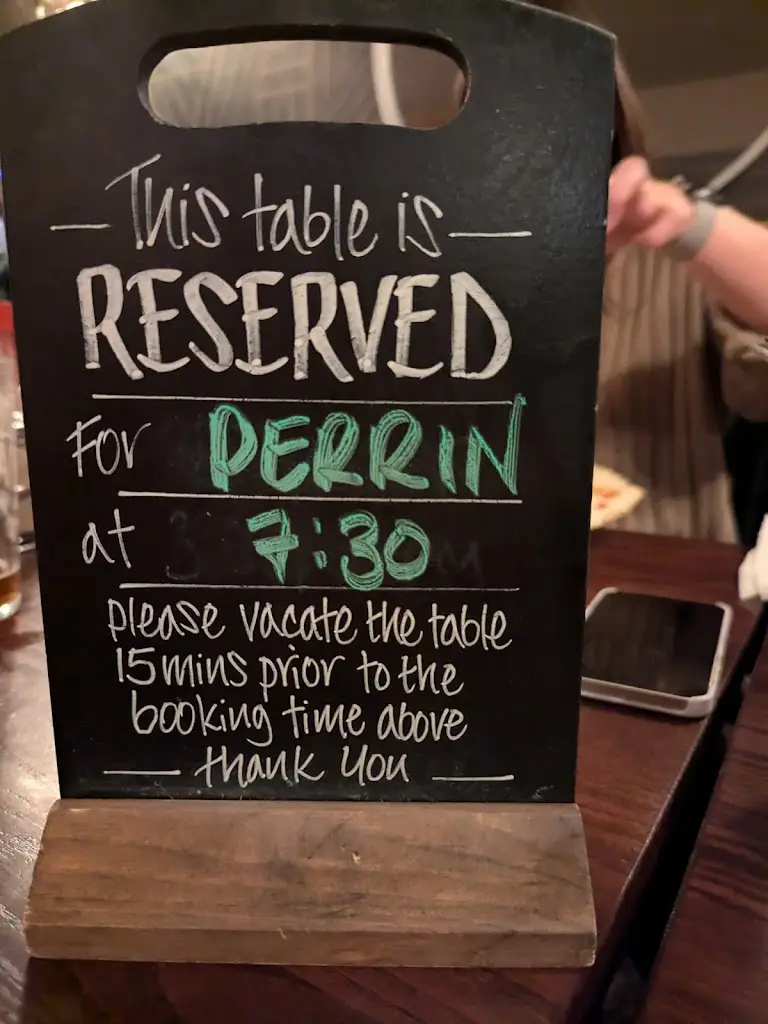 This table is
RESERVED
For PERRIN
at 7:30
please vacate the table
15mins prior to the
booking time above
thank you